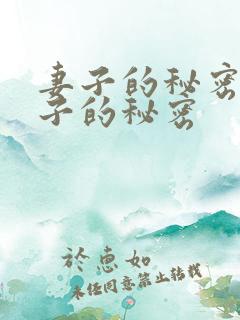 妻子的秘密
子的秘密
於惠如
未经同意禁止转载